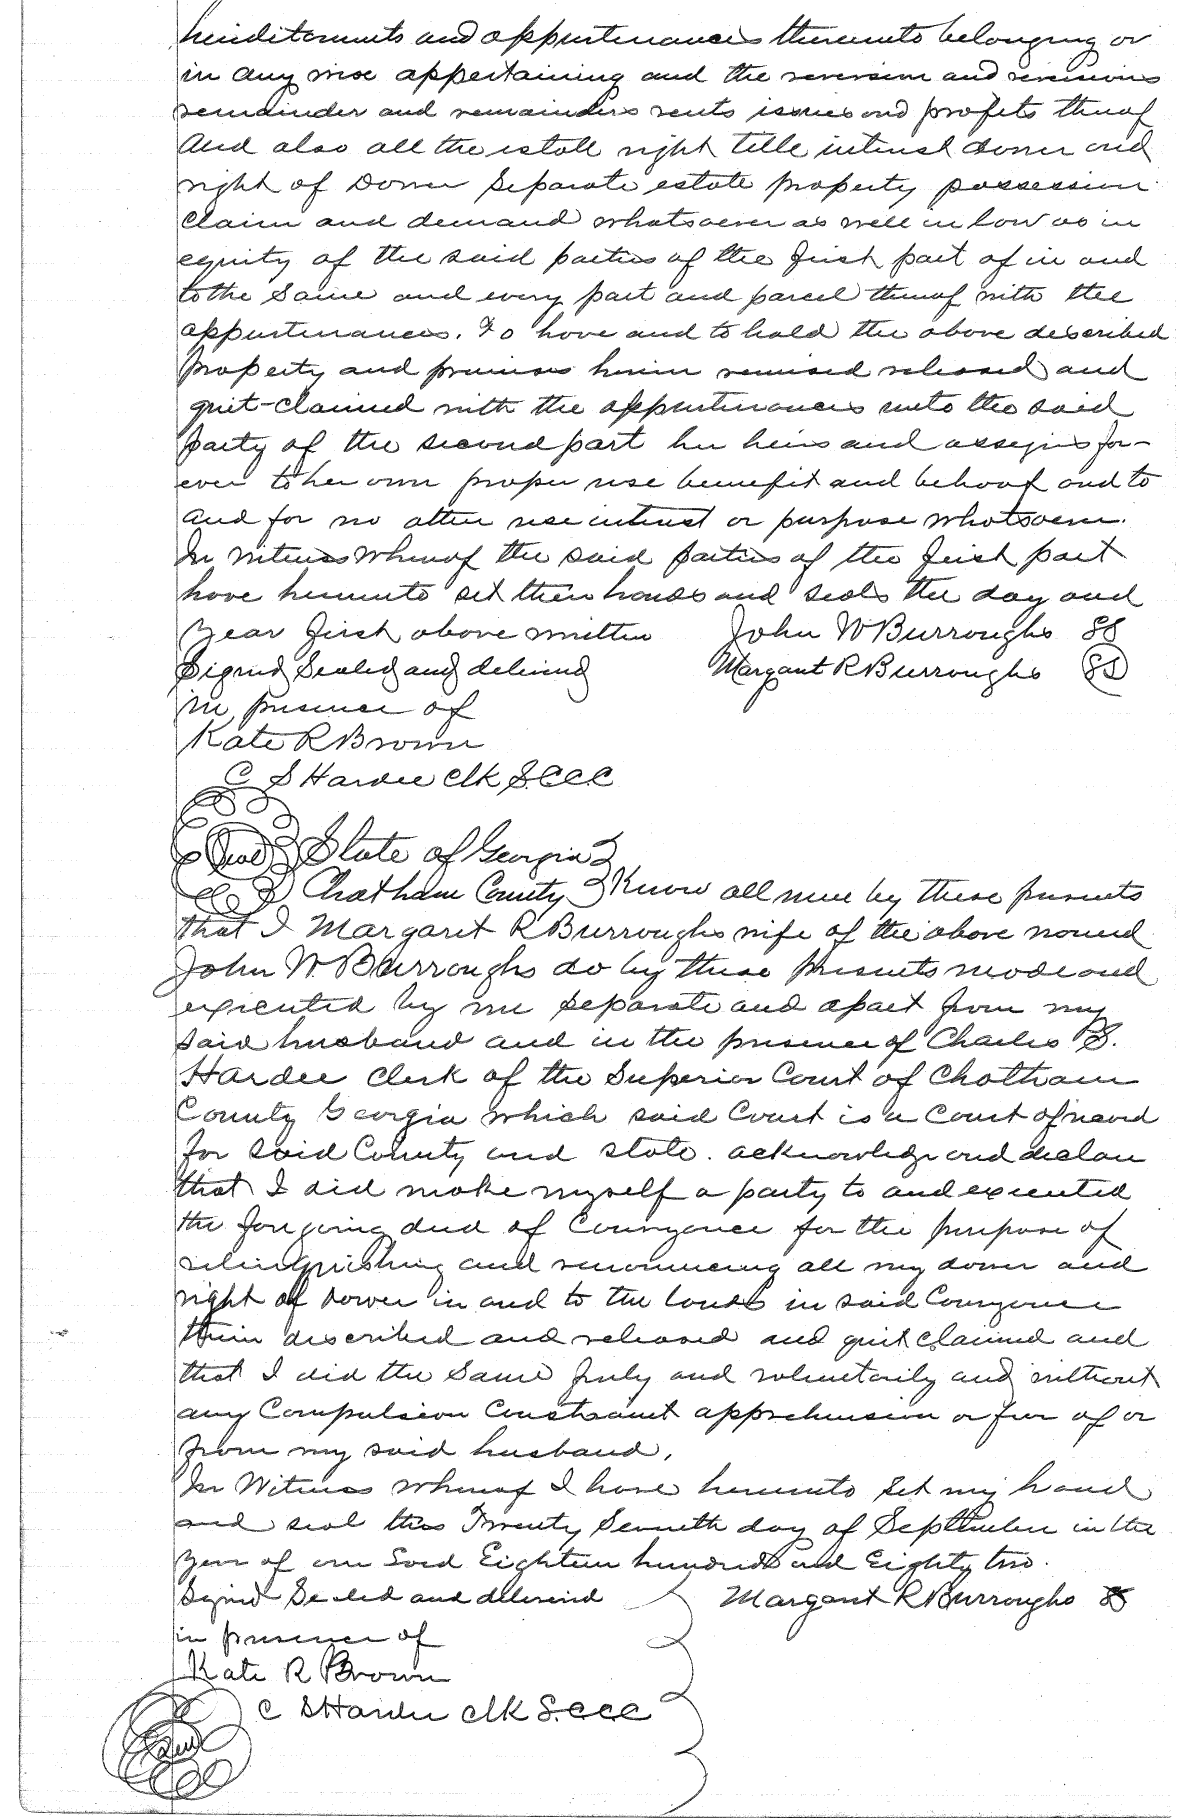 hereditaments and appurtenances thereunto belonging or
in any wise appertaining and the reversion and reversions
remainder and remainders rents issues and profits thereof
And also all the estate right title interest dower and
right of Dower Separate estate property possession
Claim and demand whatsoever as well in law as in
equity of the said parties of the first part of in and
to the Same and every part and parcel thereof with the
appurtenances. To have and to hold the above described
property and premises herein remised released and
quit-claimed with the appurtenances unto the said
party of the second part her heirs and assigns for-
ever to her own proper use benefit and behoof and to
and for no other use interest or purpose whatsoever.
In Witness Whereof the said parties of the first part
have hereunto set their hands and seals the day and
year first above written John W Burroughs SS
Signed Sealed and delivered Margaret R Burroughs SS
in presence of
Kate R Brown
C S Hardee Clk S.C.C.C
Seal State of Georgia
Chatham County Know all men by these presents
that I Margaret R Burroughs wife of the above named
John W Burroughs do by these presents made and
executed by me separate and apart from my
said husband and in the presence of Charles S.
Hardee Clerk of the Superior Court of Chatham
County Georgia which said Court is a Court of record
for said County and state. acknowledge and declare
that I did make myself a party to and executed
the foregoing deed of Conveyance for the purpose of
relinquishing and renouncing all my dower and
right of Dower in and to the lands in said Conveyance
therein described and released and quit claimed and
that I did the Same freely and voluntarily and without
any Compulsion Constraint apprehension or fear of or
from my said husband.
In Witness whereof I have hereunto set my hand
and seal this Twenty Seventh day of September in the
year of our Lord Eighteen hundred and Eighty two.
Signed Sealed and delivered Margaret R Burroughs SS
in presence of
Kate R Brown
C S Hardee Clk S.C.C.C
Seal